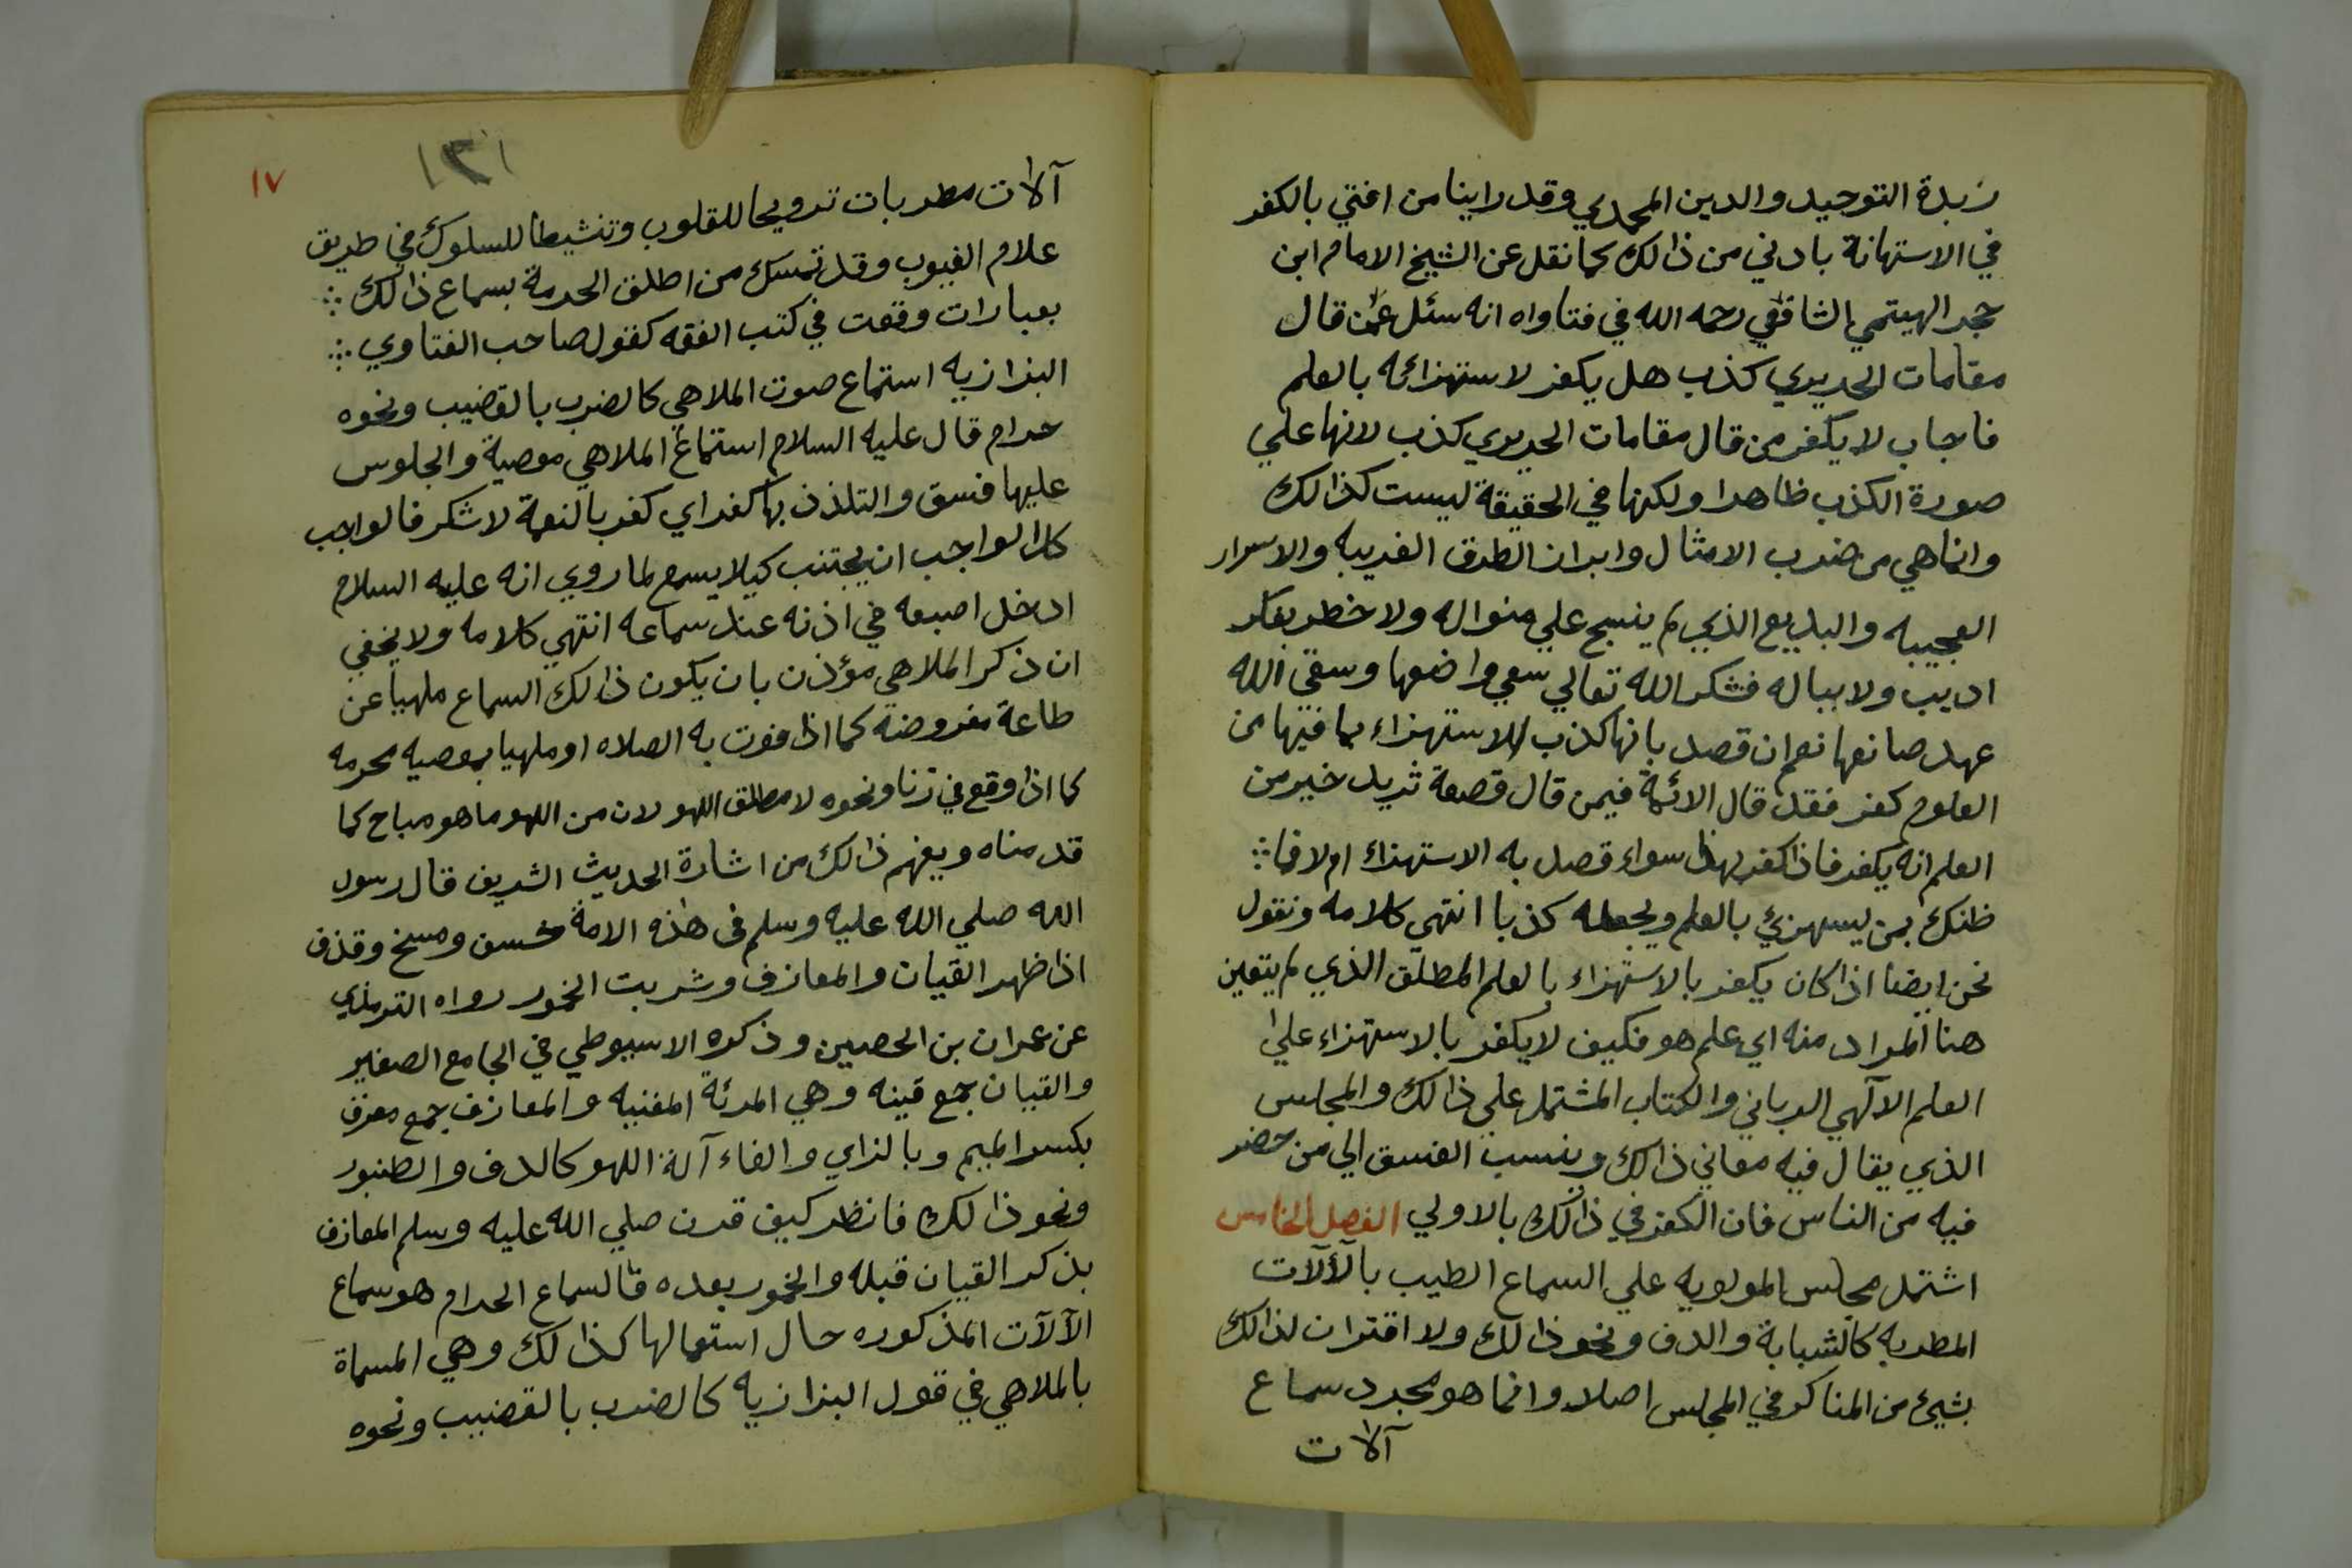 زبدة التوحيد والدين المحمدي وقد راينا من افتي بالكفر
في الاستهانة بادني من ذالك كما نقل عن الشيخ الامام ابن
حجر الهيتمي الشافعي رحمه الله في فتاواه انه سئل عمن قال
مقامات الحريري كذب هل يكفر لاستهزائه بالعلم
فاجاب لا يكفر من قال مقامات الحريري كذب لانها علي
صورة الكذب ظاهرا ولكنها في الحقيقة ليست كذالك
وانما هي من ضرب الامثال وابراز الطرق الغريبه والاسرار
العجيبه والبديع الذي لم ينسج علي منواله ولا خطر بفكر
اديب ولا بباله فشكر الله تعالي سعي واضعها وسقي الله
عهد صانعها نعم ان قصد بانها كذب الاستهزاء بما فيها من
العلوم كفر فقد قال الائمة فيمن قال قصعة ثريد خير من
العلم انه يكفر فاذا كفر بهذا سواء قصد به الاستهزاء ام لا فما
ظنك بمن يسهزئ بالعلم ويجعله كذبا انتهي كلامه ونقول
نحن ايضا اذا كان يكفر بالاستهزاء بالعلم المطلق الذي لم يتعين
هنا المراد منه اي علم هو فكيف لا يكفر بالاستهزاء علي
العلم الآلهي الرباني والكتاب المشتمل علي ذالك والمجلس
الذي يقال فيه معاني ذالك وينسب الفسق الي من حضر
فيه من الناس فان الكفر في ذالك بالاولي الفصل الخامس
اشتمل مجلس المولويه علي السماع الطيب بالآلات
المطربه كالشبابة والدف ونحو ذالك ولا اقتران لذالك
بشيئ من المناكر في المجلس اصلا وانما هو مجرد سماع
آلات
١٧
١٣١
آلات مطربات ترويحا للقلوب وتنشيطا للسلوك في طريق
علام الغيوب وقد تمسك من اطلق الحرمة بسماع ذالك
بعبارات وقعت في كتب الفقه كقول صاحب الفتاوي
البزازيه استماع صوت الملاهي كالضرب بالقضيب ونحوه
حرام قال عليه السلام استماع الملاهي معصية والجلوس
عليها فسق والتلذذ بها كفر اي كفر بالنعمة لا شكر فالواجب
كل الواجب ان يجتنب كيلا يسمع لما روي انه عليه السلام
ادخل اصبعه في اذنه عند سماعه انتهي كلامه ولا يخفي
ان ذكر الملاهي مؤذن بان يكون ذالك السماع ملهيا عن
طاعة مفروضه كما اذا فوت به الصلاه او ملهيا بمعصيه محرمه
كما اذا وقع في زنا ونحوه لا مطلق اللهو لان من اللهو ما هو مباح كما
قدمناه ويفهم ذالك من اشارة الحديث الشريف قال رسول
الله صلي الله عليه وسلم في هذه الامة خسف ومسخ وقذف
اذا ظهر القيان والمعازف وشربت الخمور رواه الترمذي
عن عمران بن الحصين وذكره الاسيوطي في الجامع الصغير
والقيان جمع قينه وهي المرئة المغنيه والمعازف جمع معزف
بكسر الميم وبالزاي والفاء آلة اللهو كالدف والطنبور
ونحو ذالك فانظر كيف قرن صلي الله عليه وسلم المعازف
بذكر القيان قبله والخمور بعده فالسماع الحرام هو سماع
الآلات المذكوره حال استعمالها كذالك وهي المسماة
بالملاهي في قول البزازيه كالضرب بالقضيب ونحوه